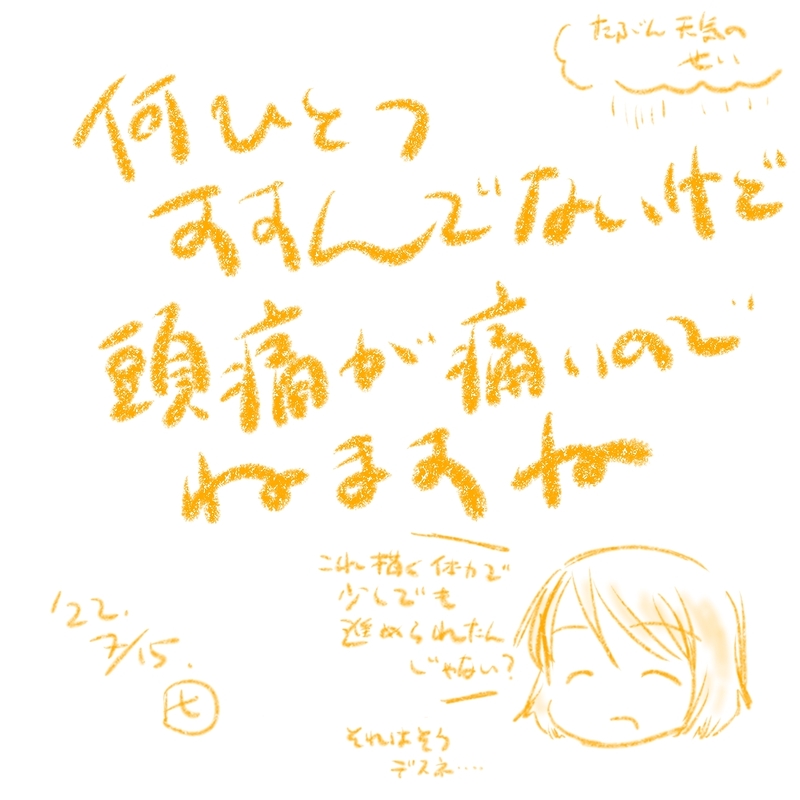 たぶん天気の
せい
何ひとつ
すすんでないけど
頭痛が痛いので
ねますね
これ描く体力で
少しでも
進められたん
じゃない?
それはそう
デスネ‥‥
'22.
7/15.
七